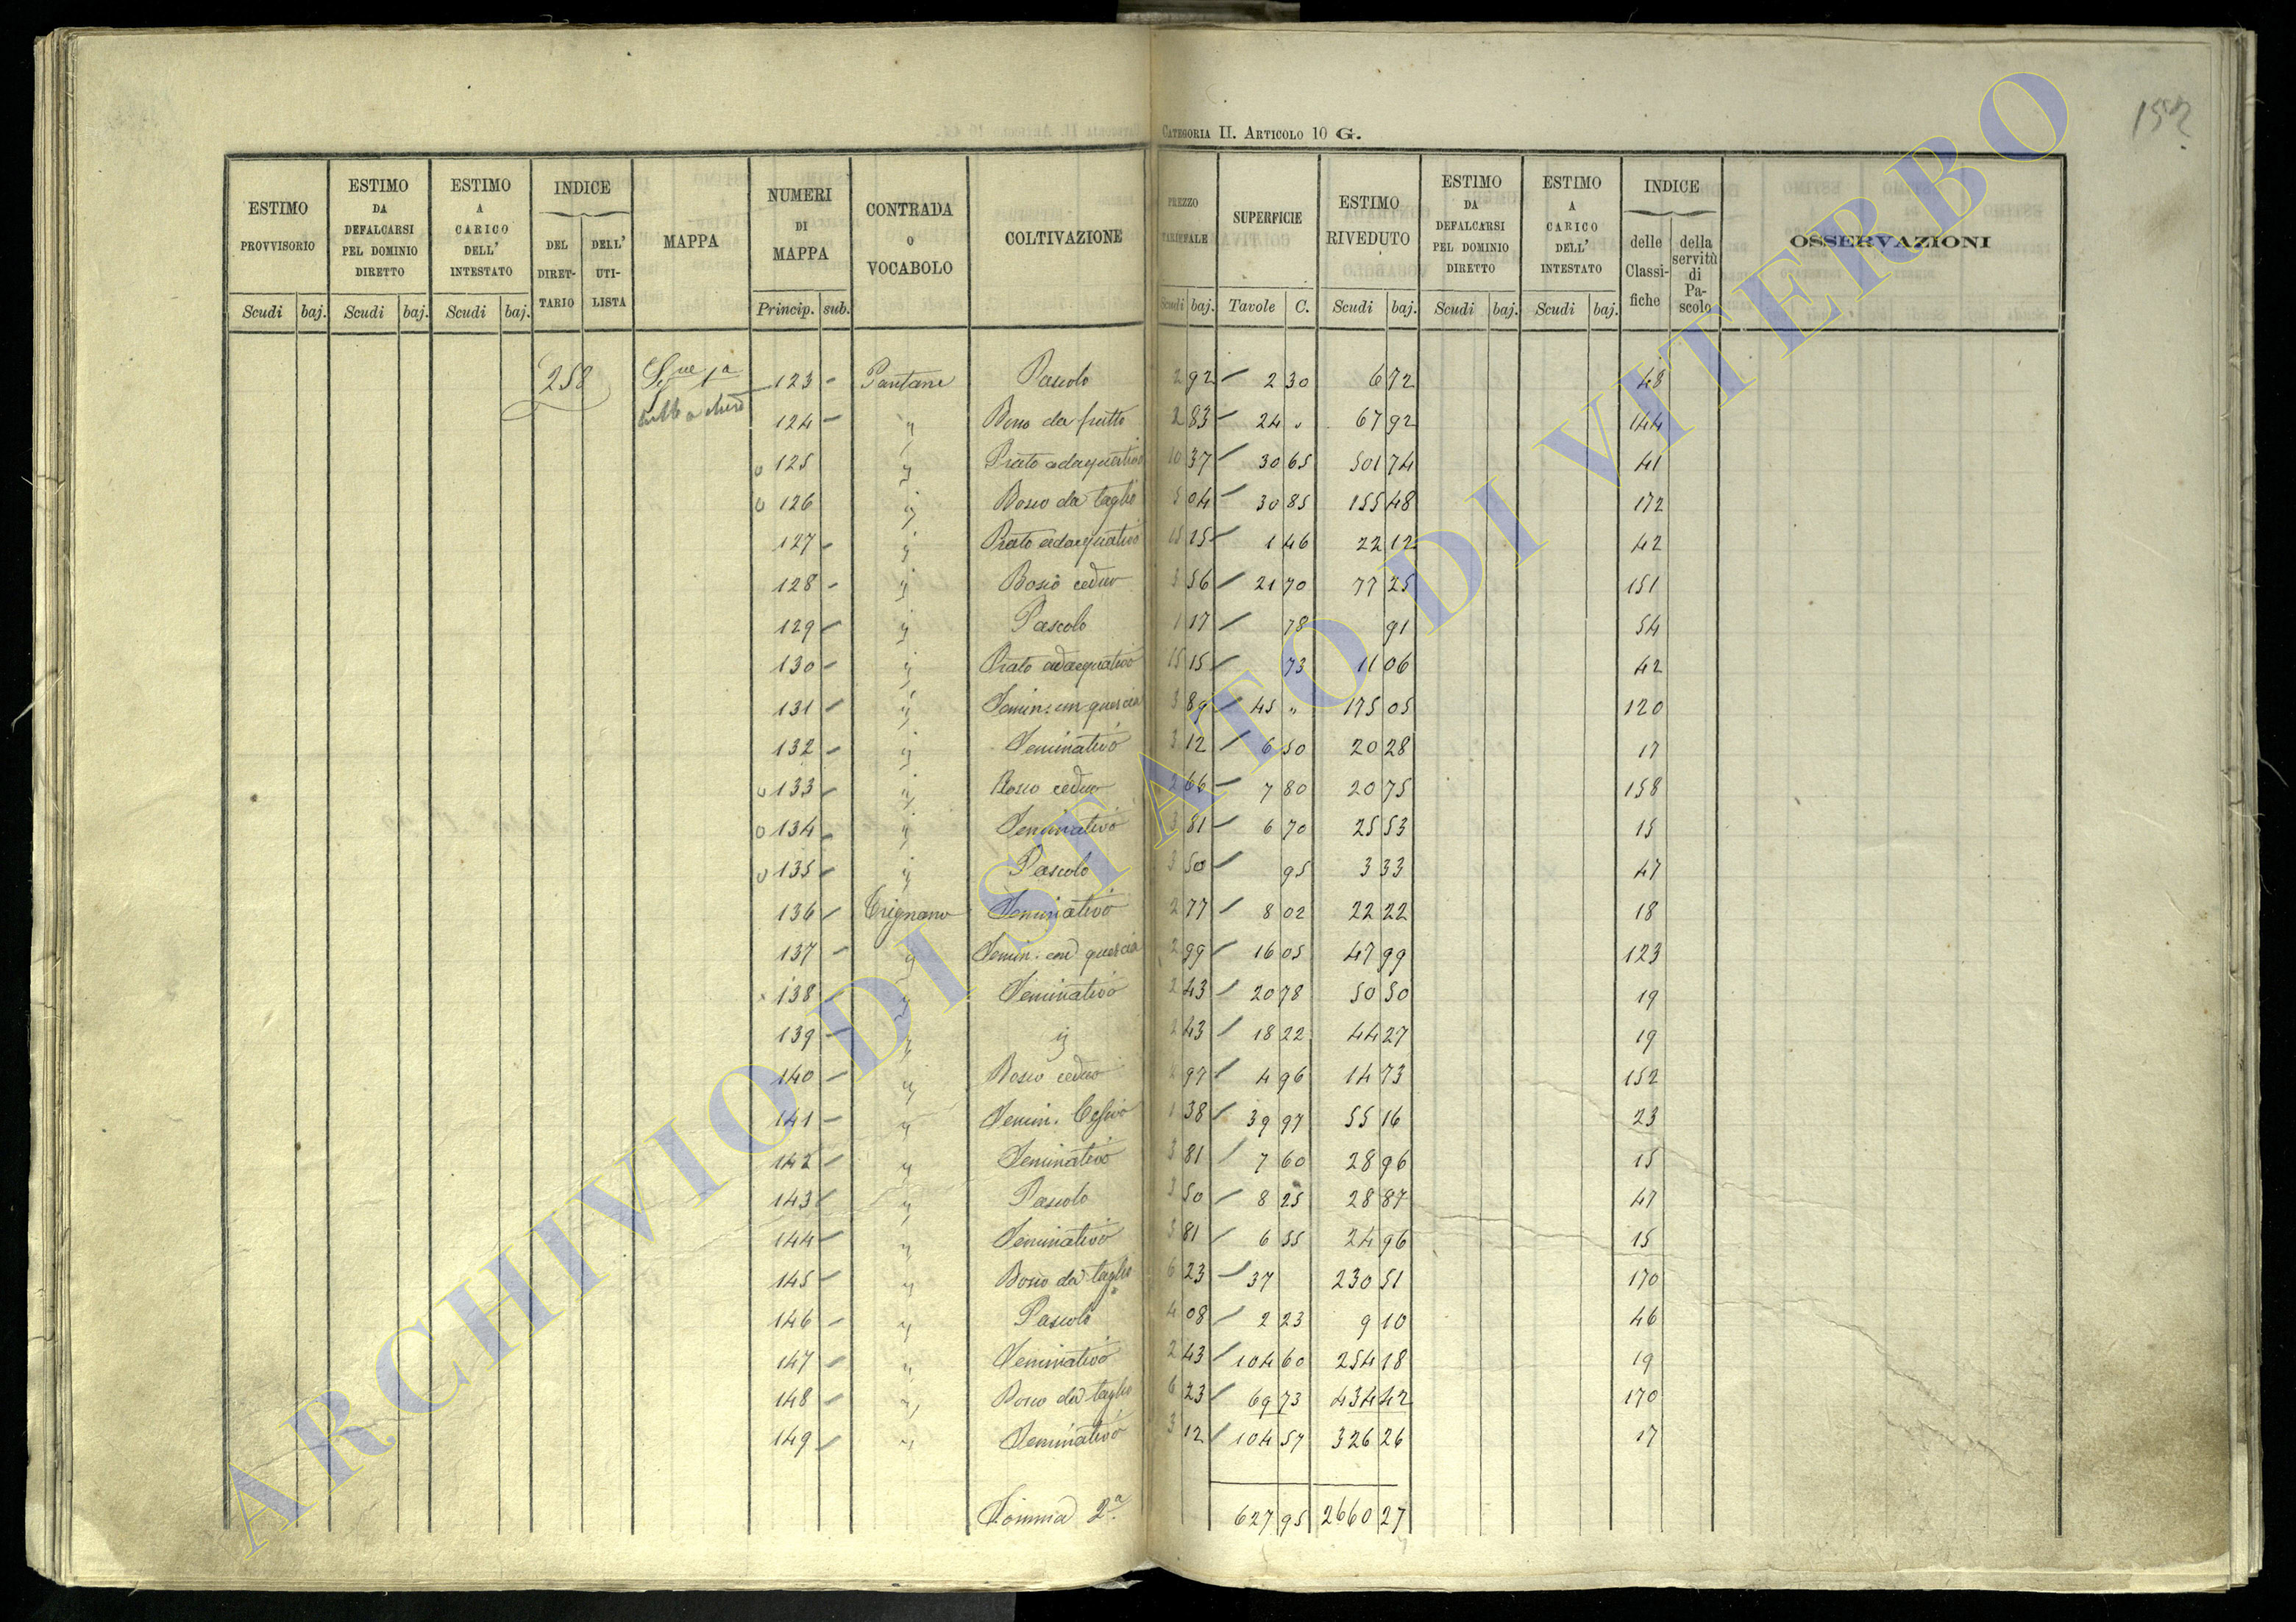 152
CATEGORIA II. ARTICOLO 10 G.
ESTIMO PROVVISORIO Scudi baj.
ESTIMO DA DEFALCARSI PEL DOMINIO DIRETTO Scudi baj.
ESTIMO A CARICO DELL' INTESTATO Scudi baj.
INDICE DEL DIRETTARIO DELL' UTILISTA
MAPPA
NUMERI DI MAPPA Princip. sub.
CONTRADA O VOCABOLO
COLTIVAZIONE
PREZZO TARIFFALE Scudi baj.
SUPERFICIE Tavole C.
ESTIMO RIVEDUTO Scudi baj.
ESTIMO DA DEFALCARSI PEL DOMINIO DIRETTO Scudi baj.
ESTIMO A CARICO DELL' INTESTATO Scudi baj.
INDICE delle Classifiche della servitù di Pascolo
OSSERVAZIONI
258 123 - Pantane Pascolo 2 92 - 2 30 6 72 48
124 - " Bosco da frutto 2 83 - 24 " 67 92 144
o 125 " Prato adacquativo 10 37 - 30 65 501 74 41
o 126 " Bosco da taglio 5 04 - 30 85 155 48 172
127 - " Prato adacquativo 15 15 - 1 46 22 12 42
128 - " Bosco ceduo 3 56 - 21 70 77 25 151
129 - " Pascolo 1 17 - 78 91 54
130 - " Prato adacquativo 15 15 - 73 11 06 42
131 - " Semin: con quercia 3 89 - 45 " 175 05 120
132 - " Seminativo 3 12 - 6 50 20 28 17
o 133 - " Bosco ceduo 2 66 - 7 80 20 75 158
o 134 - " Seminativo 3 81 - 6 70 25 53 15
o 135 - " Pascolo 3 50 - 95 3 33 47
136 - Trignano Seminativo 2 77 - 8 02 22 22 18
137 - " Semin. con quercia 2 99 - 16 05 47 99 123
138 - " Seminativo 2 43 - 20 78 50 50 19
139 - " " 2 43 - 18 22 44 27 19
140 - " Bosco ceduo 2 97 - 4 96 14 73 152
141 - " Semin. 1 38 - 39 97 55 16 23
142 - " Seminativo 3 81 - 7 60 28 96 15
143 - " Pascolo 3 50 - 8 25 28 87 47
144 - " Seminativo 3 81 - 6 55 24 96 15
145 - " Bosco da taglio 6 23 - 37 230 51 170
146 - " Pascolo 4 08 - 2 23 9 10 46
147 - " Seminativo 2 43 - 104 60 254 18 19
148 - " Bosco da taglio 6 23 - 69 73 434 42 170
149 - " Seminativo 3 12 - 104 57 326 26 17
Somma 2.a 627 95 2660 27
ARCHIVIO DI STATO DI VITERBO